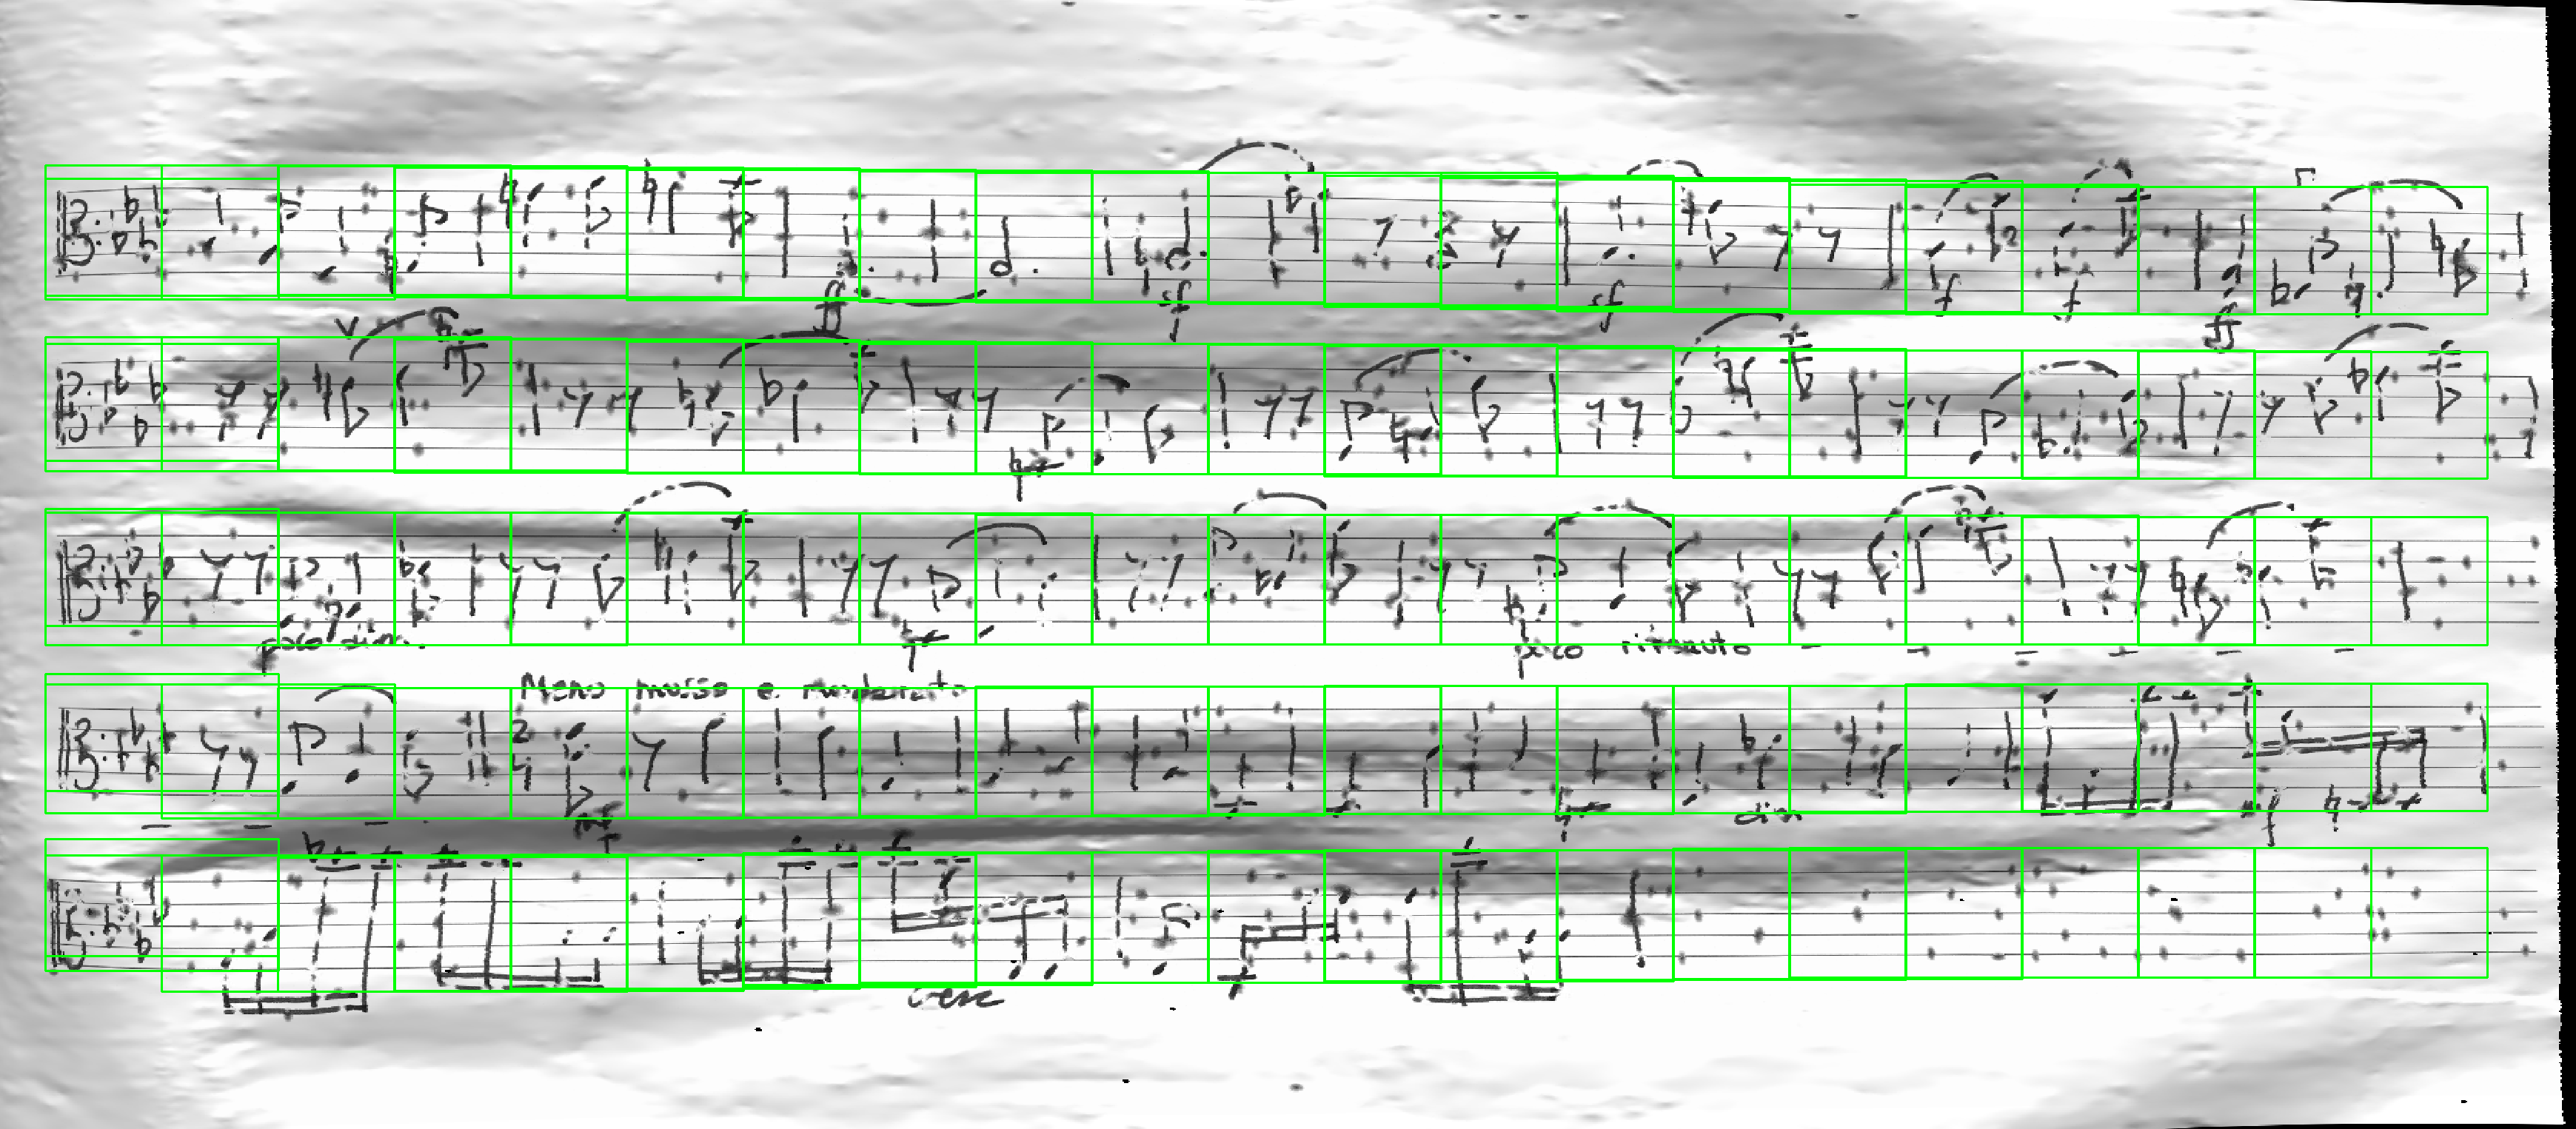 ff sf sf f f ff
p
poco dim. p poco ritenuto
Meno mosso e moderato
mf p dim f
cresc